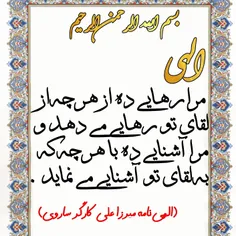 بسم الله الرحمن الرحیم
الهی
مرا رهایی ده از هر چه از
لقای تو رهایی می دهد و
مرا آشنایی ده با هر چه که
به لقای تو آشنایی می نماید .
(الهی نامه میرزا علی کارگر ساروی)